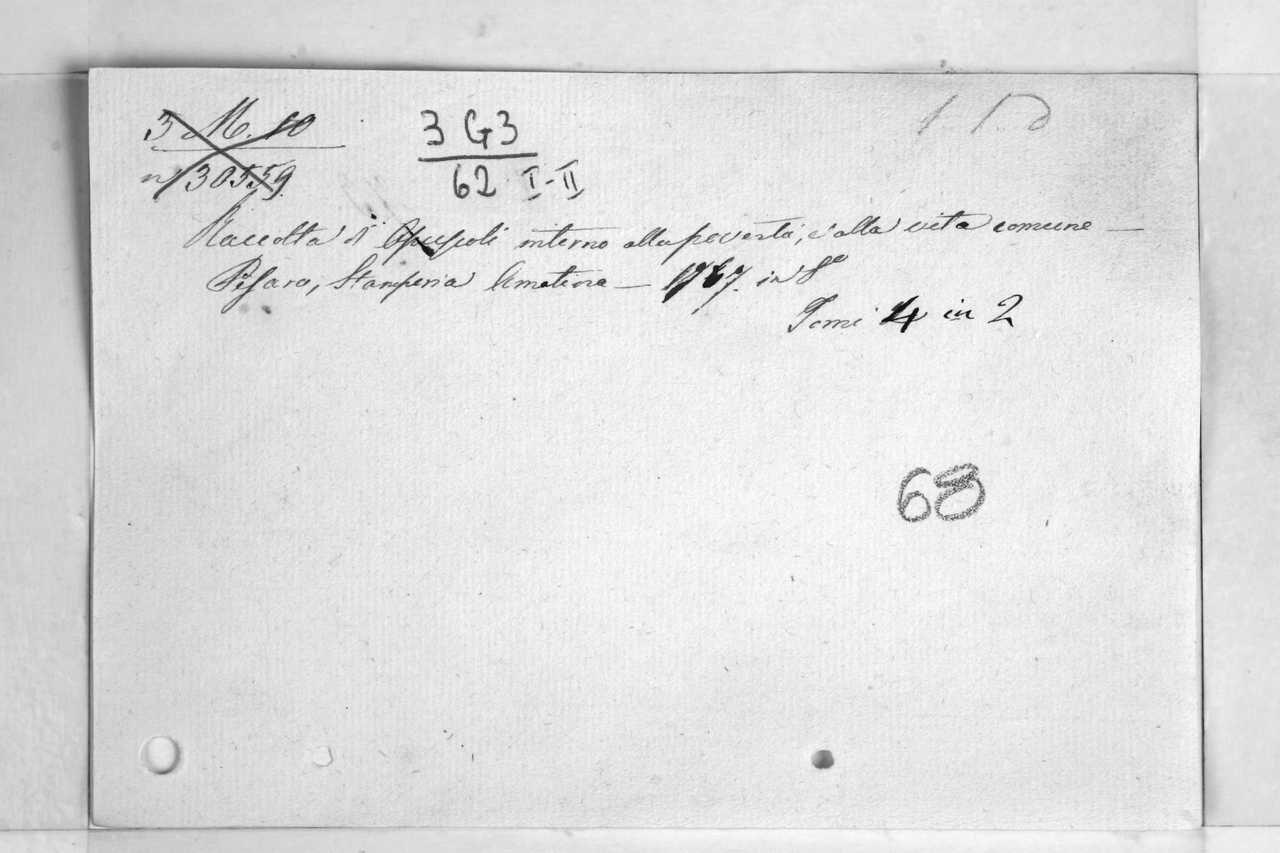 3 M. 10
n° 30559.
3 G3
62 I-II
Raccolta di Opuscoli interno alla povertà, e alla vita comune —
Pesaro, Stamperia Amatina — 1767. in 8°
Tomi 4 in 2
63